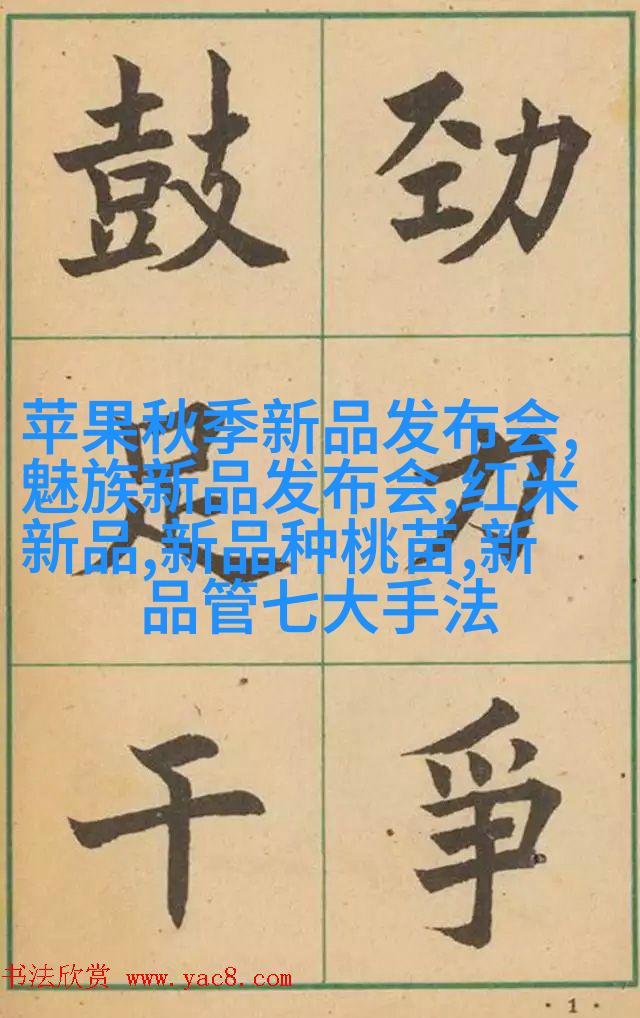 鼓足干
劲力争
苹果秋季新品发布会,
魅族新品发布会,红米
新品,新品种桃苗,新
品管七大手法
书法欣赏 www.yac8.com
·1·